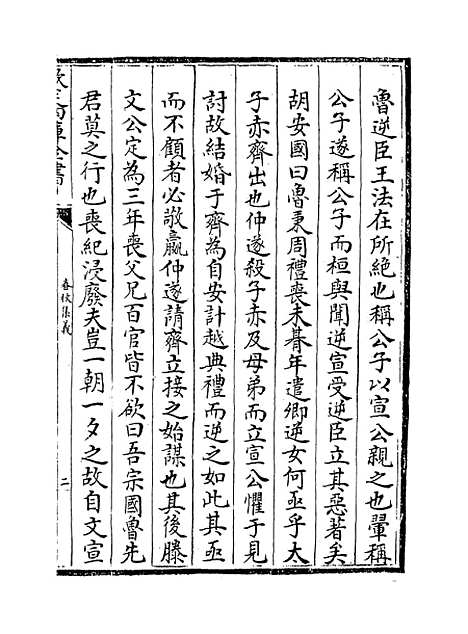 魯逆臣王法在所絶也稱公子以宣公親之也翬稱
公子遂稱公子而桓與聞逆宣受逆臣立其惡著矣
胡安國曰魯秉周禮喪未朞年遣卿逆女何亟乎太
子赤齊出也仲遂殺子赤及母弟而立宣公懼于見
討故結婚于齊為自安計越典禮而逆之如此其亟
而不顧者必敬嬴仲遂請齊立接之始謀也其後滕
文公定為三年喪父兄百官皆不欲曰吾宗國魯先
君莫之行也喪紀浸廢夫豈一朝一夕之故自文宣
欽定四庫全書
春秋集義
二